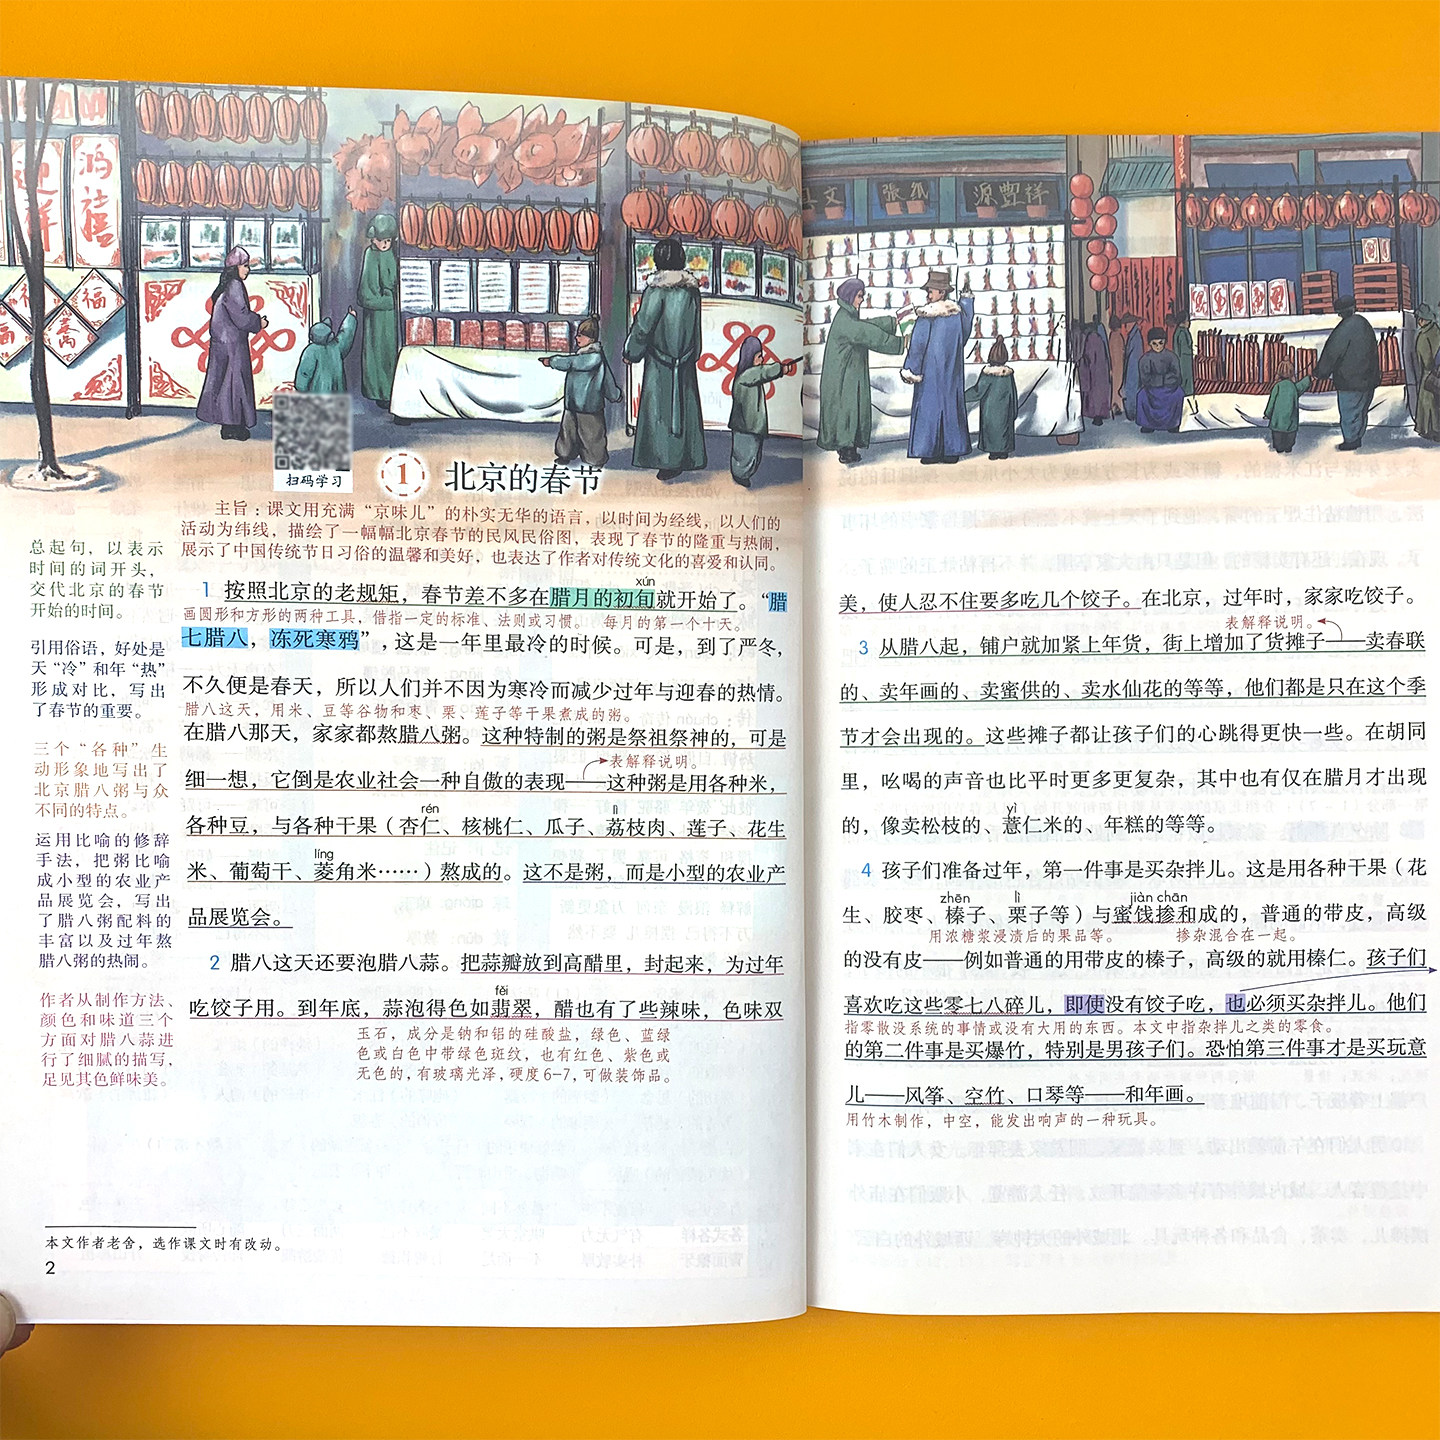 迎祥
鸿禧
福
福
扫码学习
1 北京的春节
主旨：课文用充满“京味儿”的朴实无华的语言，以时间为经线，以人们的
活动为纬线，描绘了一幅幅北京春节的民风民俗图，表现了春节的隆重与热闹，
展示了中国传统节日习俗的温馨和美好，也表达了作者对传统文化的喜爱和认同。
总起句，以表示
时间的词开头，
交代北京的春节
开始的时间。
引用俗语，好处是
天“冷”和年“热”
形成对比，写出
了春节的重要。
三个“各种”生
动形象地写出了
北京腊八粥与众
不同的特点。
运用比喻的修辞
手法，把粥比喻
成小型的农业产
品展览会，写出
了腊八粥配料的
丰富以及过年熬
腊八粥的热闹。
作者从制作方法、
颜色和味道三个
方面对腊八蒜进
行了细腻的描写，
足见其色鲜味美。
xún
1 按照北京的老规矩，春节差不多在腊月的初旬就开始了。“腊
画圆形和方形的两种工具，借指一定的标准、法则或习惯。 每月的第一个十天。
七腊八，冻死寒鸦”，这是一年里最冷的时候。可是，到了严冬，
不久便是春天，所以人们并不因为寒冷而减少过年与迎春的热情。
腊八这天，用米、豆等谷物和枣、栗、莲子等干果煮成的粥。
在腊八那天，家家都熬腊八粥。这种特制的粥是祭祖祭神的，可是
表解释说明。
细一想，它倒是农业社会一种自傲的表现——这种粥是用各种米，
rén lì
各种豆，与各种干果（杏仁、核桃仁、瓜子、荔枝肉、莲子、花生
líng
米、葡萄干、菱角米……）熬成的。这不是粥，而是小型的农业产
品展览会。
2 腊八这天还要泡腊八蒜。把蒜瓣放到高醋里，封起来，为过年
fěi
吃饺子用。到年底，蒜泡得色如翡翠，醋也有了些辣味，色味双
玉石，成分是钠和铝的硅酸盐，绿色、蓝绿
色或白色中带绿色斑纹，也有红色、紫色或
无色的，有玻璃光泽，硬度6-7，可做装饰品。
本文作者老舍，选作课文时有改动。
2
张
源豐祥
美，使人忍不住要多吃几个饺子。在北京，过年时，家家吃饺子。
表解释说明。
3 从腊八起，铺户就加紧上年货，街上增加了货摊子——卖春联
的、卖年画的、卖蜜供的、卖水仙花的等等，他们都是只在这个季
节才会出现的。这些摊子都让孩子们的心跳得更快一些。在胡同
里，吆喝的声音也比平时更多更复杂，其中也有仅在腊月才出现
yì
的，像卖松枝的、薏仁米的、年糕的等等。
4 孩子们准备过年，第一件事是买杂拌儿。这是用各种干果（花
zhēn lì jiàn chān
生、胶枣、榛子、栗子等）与蜜饯掺和成的，普通的带皮，高级
用浓糖浆浸渍后的果品等。 掺杂混合在一起。
的没有皮——例如普通的用带皮的榛子，高级的就用榛仁。孩子们
喜欢吃这些零七八碎儿，即使没有饺子吃，也必须买杂拌儿。他们
指零散没系统的事情或没有大用的东西。本文中指杂拌儿之类的零食。
的第二件事是买爆竹，特别是男孩子们。恐怕第三件事才是买玩意
儿——风筝、空竹、口琴等——和年画。
用竹木制作，中空，能发出响声的一种玩具。